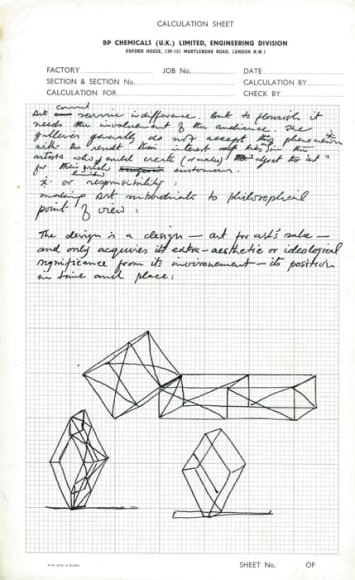 CALCULATION SHEET
BP CHEMICALS (U.K.) LIMITED, ENGINEERING DIVISION
FACTORY JOB No. DATE
SECTION & SECTION No. CALCULATION BY
CALCULATION FOR CHECK BY
cannot
Art survive indifference but to flourish it
needs the involvement of the audience. The
galleries generally do not accept this
with the result their interest lies in the
artists who could create (or make) object to
for their customers.
limited
x. or responsibility:
making art subordinate to philosophical
point of view:
The design is a design — art for art's sake —
and only acquires its extra-aesthetic or ideological
significance from its environment — its position
in time and place:
SHEET No. OF